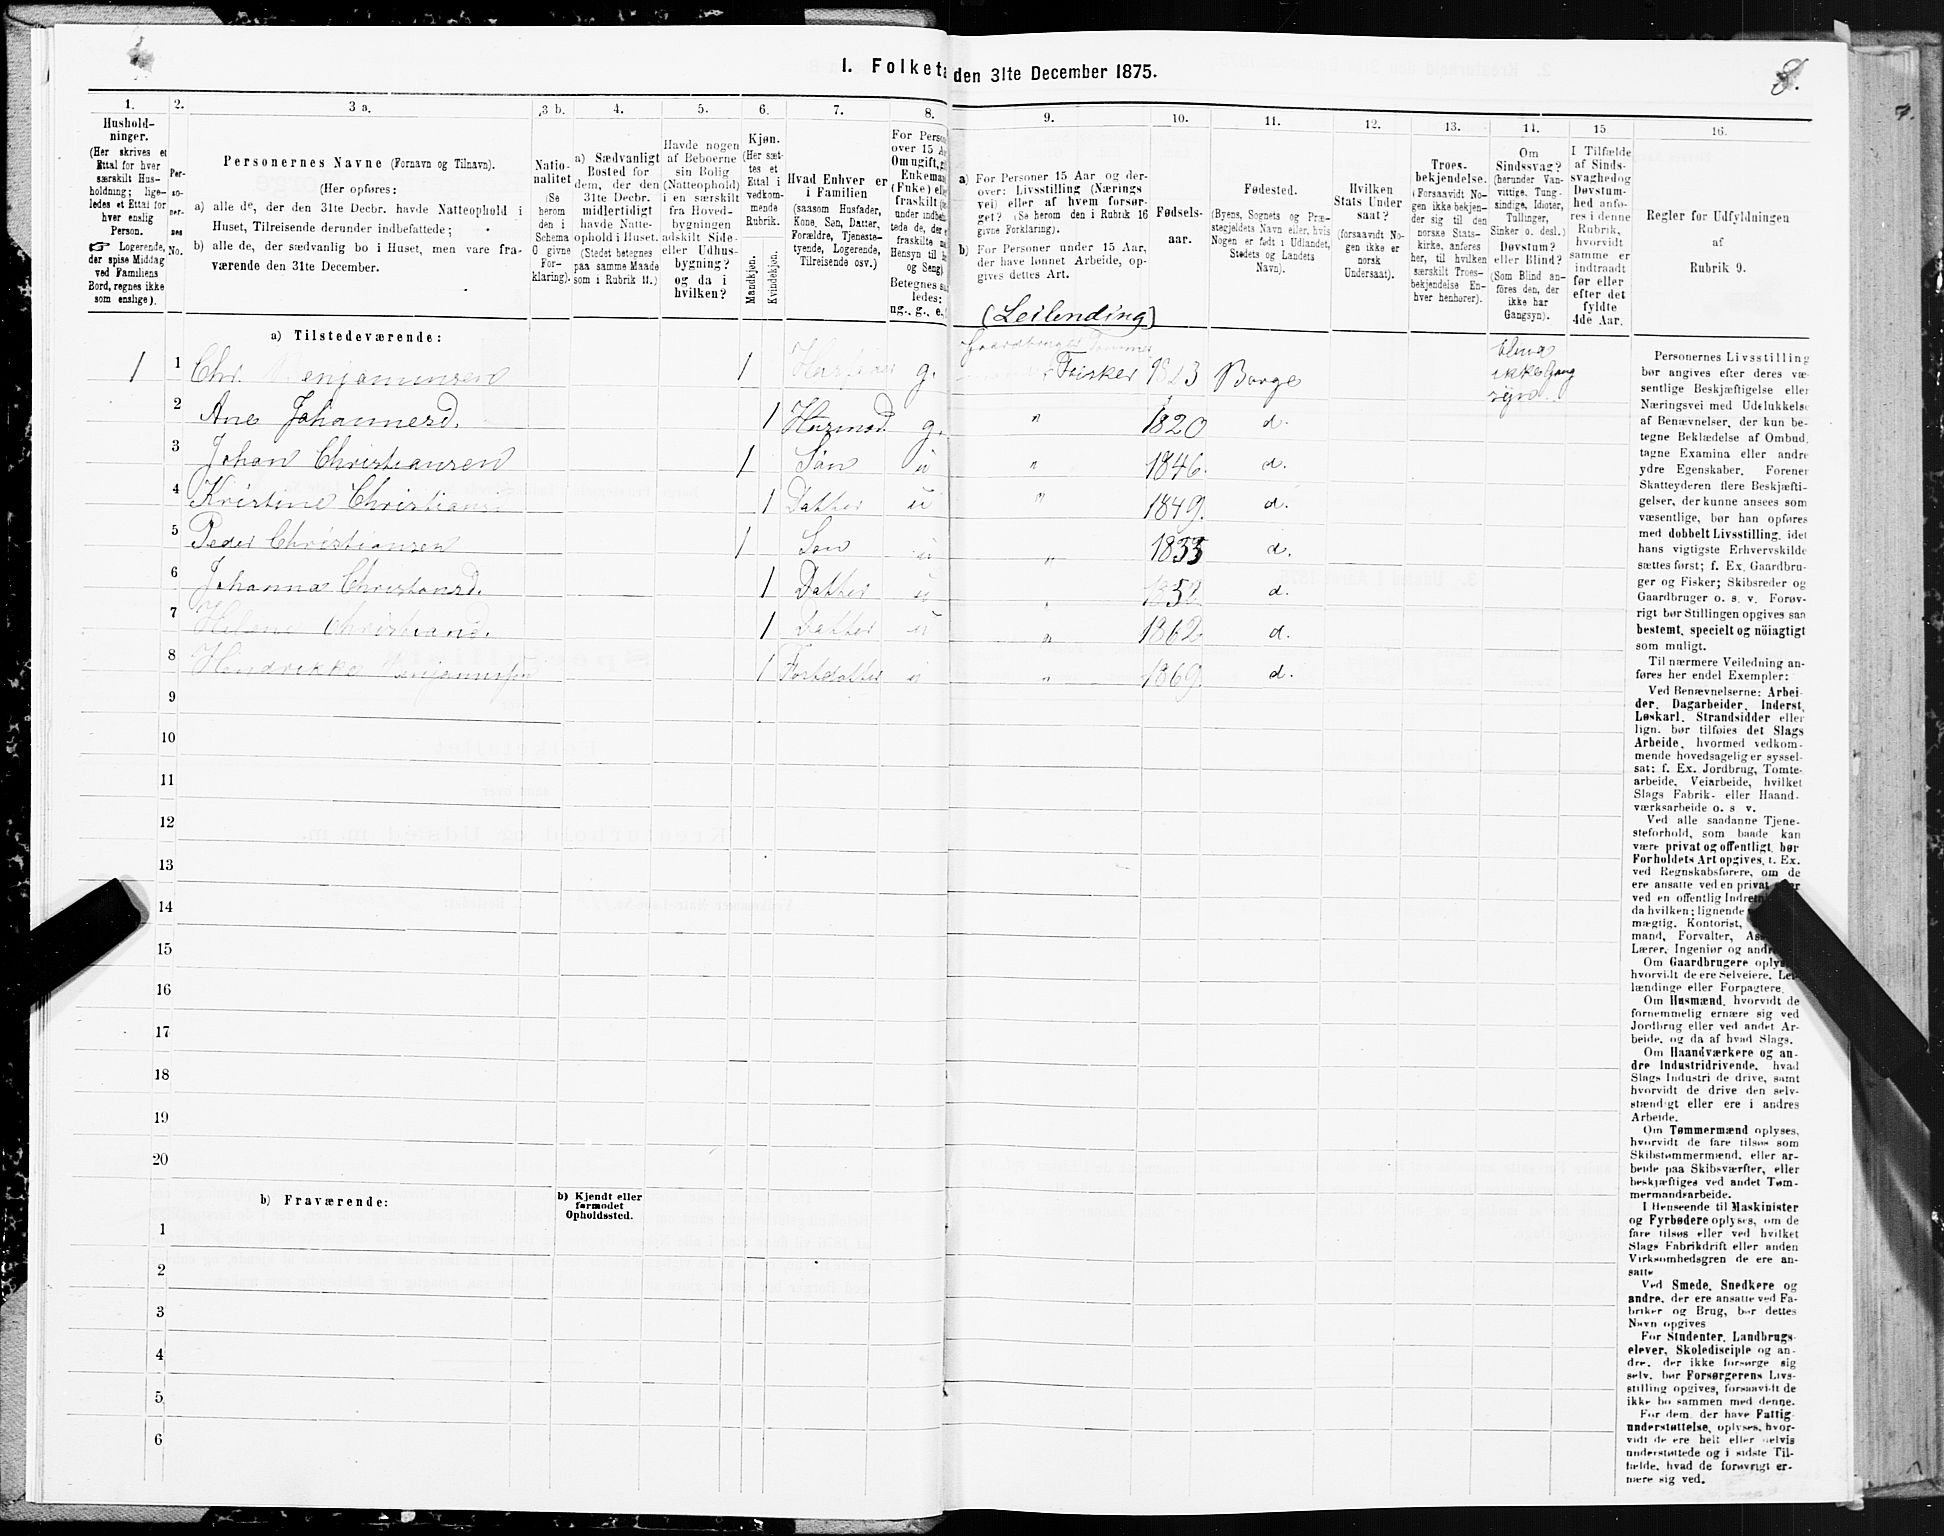 I. Folketæ
den 31te December 1875.
8.
1.
Hushold-
ninger.
(Her skrives et
Ettal for hver
særskilt Hus-
holdning; lige-
ledes et Ettal for
hver enslig
Person.
☞ Logerende,
der spise Middag
ved Familiens
Bord, regnes ikke
som enslige).
2.
Per-
so-
ner-
nes
No.
3 a.
Personernes Navne (Fornavn og Tilnavn).
(Her opføres:
a) alle de, der den 31te Decbr. havde Natteophold i
Huset, Tilreisende derunder indbefattede;
b) alle de, der sædvanlig bo i Huset, men vare fra-
værende den 31te December.
3 b.
Natio-
nalitet
(Se
herom
den i
Schema
G givne
For-
klaring).
4.
a) Sædvanligt
Bosted for
dem, der den
31te Decbr.
midlertidigt
havde Natte-
ophold i Huset.
(Stedet betegnes
paa samme Maade
som i Rubrik 11.)
5.
Havde nogen
af Beboerne
sin Bolig
(Natteophold)
i en særskilt
fra Hoved-
bygningen
adskilt Side-
eller Udhus-
bygning?
og da i
hvilken?
6.
Kjøn.
(Her sæt-
tes et
Ettal i
vedkom-
mende
Rubrik.
Mandkjøn.
Kvindekjøn.
7.
Hvad Enhver er
i Familien
(saasom Husfader,
Kone, Søn, Datter,
Forældre, Tjeneste-
tyende, Logerende,
Tilreisende osv.)
8.
For Perso
over 15 A
Om ugift, g
Enkema
(Enke) ell
fraskilt
under indbe
tede de, der
fraskilte
Hensyn til
og Seng)
Betegnes
ledes:
ug., g., e.,
9.
a) For Personer 15 Aar og der-
over: Livsstilling (Nærings
vei) eller af hvem forsør-
get? (Se herom den i Rubrik 16
givne Forklaring).
b) For Personer under 15 Aar,
der have lønnet Arbeide, op-
gives dettes Art.
(Leilending)
10.
Fødsels-
aar.
11.
Fødested.
(Byens, Sognets og Præ-
stegjeldets Navn eller, hvis
Nogen er født i Udlandet,
Stedets og Landets
Navn).
12.
Hvilken
Stats Under
saat?
(forsaavidt No-
gen ikke er
norsk
Undersaat).
13.
Troes-
bekjendelse.
(Forsaavidt No-
gen ikke bekjen-
der sig til den
norske Stats-
kirke, anføres
her, til hvilken
særskilt Troes-
bekjendelse En-
hver henhører).
14.
Om
Sindssvag?
(herunder Van-
vittige, Tung-
sindige, Idioter,
Tullinger,
Sinker o. desl.)
Døvstum?
eller Blind?
(Som Blind an-
føres den, der
ikke har
Gangsyn).
15
I Tilfælde
af Sinds-
svaghedog
Døvstum-
hed anfø-
res i denne
Rubrik,
hvorvidt
samme er
indtraadt
før eller
efter det
fyldte
4de Aar.
16.
Regler for Udfyldningen
af
Rubrik 9.
a) Tilstedeværende:
1 1 Chr. Benjaminsen 1 Husfader g. Fisker 1823 Borge ikke Gang
2 Ane Johannesd. 1 Husmod g. " 1820 d.
3 Johan Christiansen 1 Søn u " 1846. d.
4 Kristine Christians 1 Datter u " 1849. d.
5 Peder Christiansen 1 Søn u " 1855 d.
6 Johanna Christansd. 1 Datter u " 1858 d.
7 Helene Christiansd. 1 Datter u " 1862 d.
8 Hendrikke Benjaminsen 1 Fostdatter u " 1869. d.
9
10
11
12
13
14
15
16
17
18
19
20
b) Fraværende:
b) Kjendt eller
formodet
Opholdssted.
1
2
3
4
5
6
Personernes Livsstilling
bør angives efter deres væ-
sentlige Beskjæftigelse eller
Næringsvei med Udelukkelse
af Benævnelser, der kun be-
tegne Beklædelse af Ombud,
tagne Examina eller andre
ydre Egenskaber. Forener
Skatteyderen flere Beskjæfti-
gelser, der kunne ansees som
væsentlige, bør han opføres
med dobbelt Livsstilling, idet
hans vigtigste Erhvervskilde
sættes først; f. Ex. Gaardbru-
ger og Fisker; Skibsreder og
Gaardbruger o. s. v. Forøv-
rigt bør Stillingen opgives saa
bestemt, specielt og nöiagtigt
som muligt.
Til nærmere Veiledning an-
føres her endel Exempler:
Ved Benævnelserne: Arbei-
der, Dagarbeider, Inderst,
Løskarl, Strandsidder eller
lign. bør tilføies det Slags
Arbeide, hvormed vedkom-
mende hovedsagelig er syssel-
sat; f. Ex. Jordbrug, Tomte-
arbeide, Veiarbeide, hvilket
Slags Fabrik- eller Haand-
værksarbeide o. s. v.
Ved alle saadanne Tjene-
steforhold, som baade kan
være privat og offentligt, bør
Forholdets Art opgives, t. Ex.
ved Regnskabsførere, om de
ere ansatte ved en privat eller
ved en offentlig Indretn
da hvilken; lignende
mægtig, Kontorist,
mand, Forvalter, As
Lærer, Ingeniør og andre
Om Gaardbrugere oplys
hvorvidt de ere Selveiere, Lei-
lændinge eller Forpagtere.
Om Husmænd, hvorvidt de
fornemmelig ernære sig ved
Jordbrug eller ved andet Ar-
beide, og da af hvad Slags.
Om Haandværkere og an-
dre Industridrivende, hvad
Slags Industri de drive, samt
hvorvidt de drive den selv-
stændigt eller ere i andres
Arbeide.
Om Tømmermænd oplyses,
hvorvidt de fare tilsøs som
Skibstømmermænd, eller ar-
beide paa Skibsværfter, eller
beskjæftiges ved andet Tøm-
mermandsarbeide.
I Henseende til Maskinister
og Fyrbødere oplyses, om de
fare tilsøs eller ved hvilket
Slags Fabrikdrift eller anden
Virksomhedsgren de ere an-
satte
Ved Smede, Snedkere og
andre, der ere ansatte ved Fa-
briker og Brug, bør dettes
Navn opgives
For Studenter, Landbrugs-
elever, Skoledisciple og an-
dre, der ikke forsørge sig
selv, bør Forsørgerens Livs-
stilling opgives, forsaavidt de
ikke bo sammen med denne.
For dem, der have Fattig-
understøttelse, oplyses, hvor-
vidt de ere helt eller delvis
understøttede og i sidste Til-
fælde, hvad de forøvrigt er-
nære sig ved.